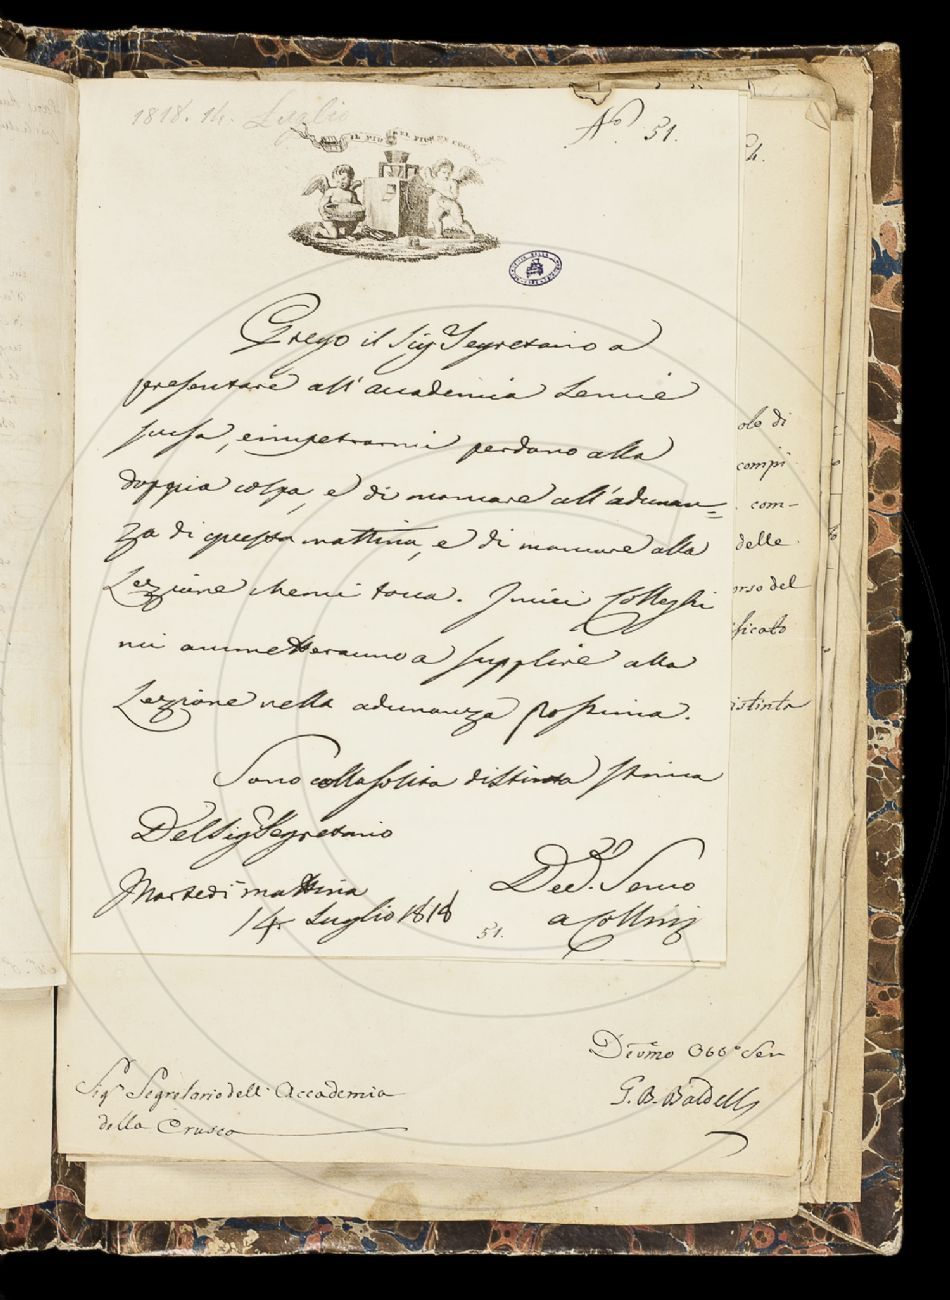 1818. 14. Luglio
N.° 51.
IL PIÙ BEL FIOR NE COGLIE
Prego il Sig Segretario a
presentare all'accademia le mie
scuse, e impetrarmi perdono alla
doppia colpa, e di mancare all'adunan=
za di questa mattina, e di mancare alla
Lezione che mi tocca. I miei Colleghi
mi ammetteranno a supplire alla
Lezione nella adunanza prossima.
Sono colla solita distinta stima
Del Sig Segretario
Martedì mattina
14. Luglio 1818
Dev.mo Servo
a Collini
51.
4.
ole di
compi
com-
delle
orso del
ificato
istinta
Devmo Obb° Ser
G. B. Baldelli
Sig.r Segretario dell' Accademia
della Crusca